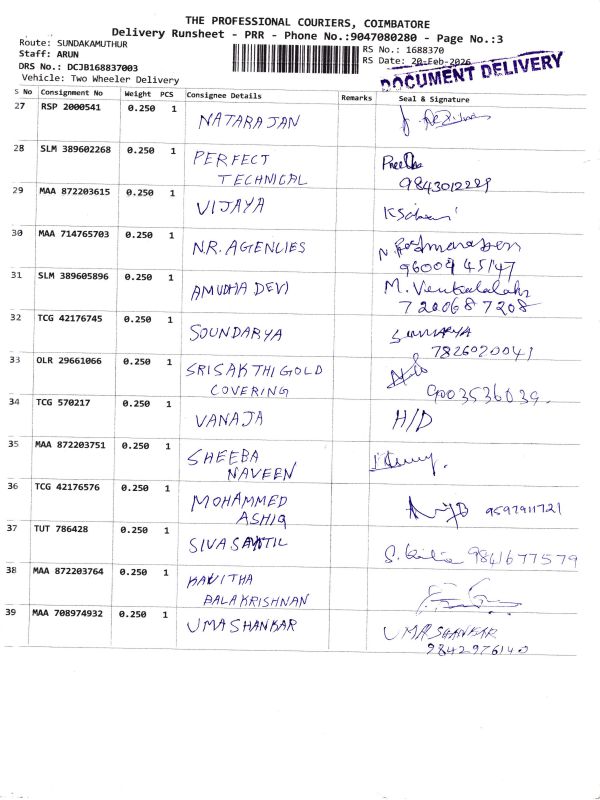 THE PROFESSIONAL COURIERS, COIMBATORE
Delivery Runsheet - PRR - Phone No.:9047080280 - Page No.:3
Route: SUNDAKAMUTHUR
RS No.: 1688370
Staff: ARUN
RS Date: 20-Feb-2026
DRS No.: DCJB168837003
DOCUMENT DELIVERY
Vehicle: Two Wheeler Delivery
S No Consignment No Weight PCS Consignee Details Remarks Seal & Signature
27 RSP 2000541 0.250 1 NATARAJAN
28 SLM 389602268 0.250 1 PERFECT
TECHNICAL 9843012229
29 MAA 872203615 0.250 1 VIJAYA
30 MAA 714765703 0.250 1 N.R. AGENCIES
96009 45147
31 SLM 389605896 0.250 1 AMUDHA DEVI M. Venkatalakshmi
720068 7208
32 TCG 42176745 0.250 1 SOUNDARYA
7826020041
33 OLR 29661066 0.250 1 SRISAKTHI GOLD
COVERING 9003536039.
34 TCG 570217 0.250 1 VANAJA H/D
35 MAA 872203751 0.250 1 SHEEBA
NAVEEN
36 TCG 42176576 0.250 1 MOHAMMED 9597911721
ASHIQ
37 TUT 786428 0.250 1 9841677579
38 MAA 872203764 0.250 1 KAVITHA
BALAKRISHNAN
39 MAA 708974932 0.250 1 UMASHANKAR UMASHANKAR
9842976140